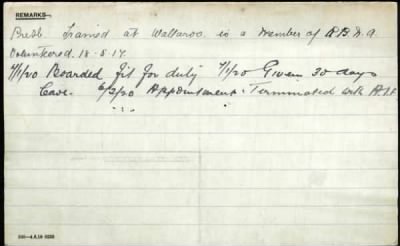 REMARKS
Trained at Wallaroo is a member of
Volunteered. 18-5-17.
7/1/20 Boarded fit for duty 7/1/20 Given 30 days
6/2/20 Appointment Terminated with A.I.F